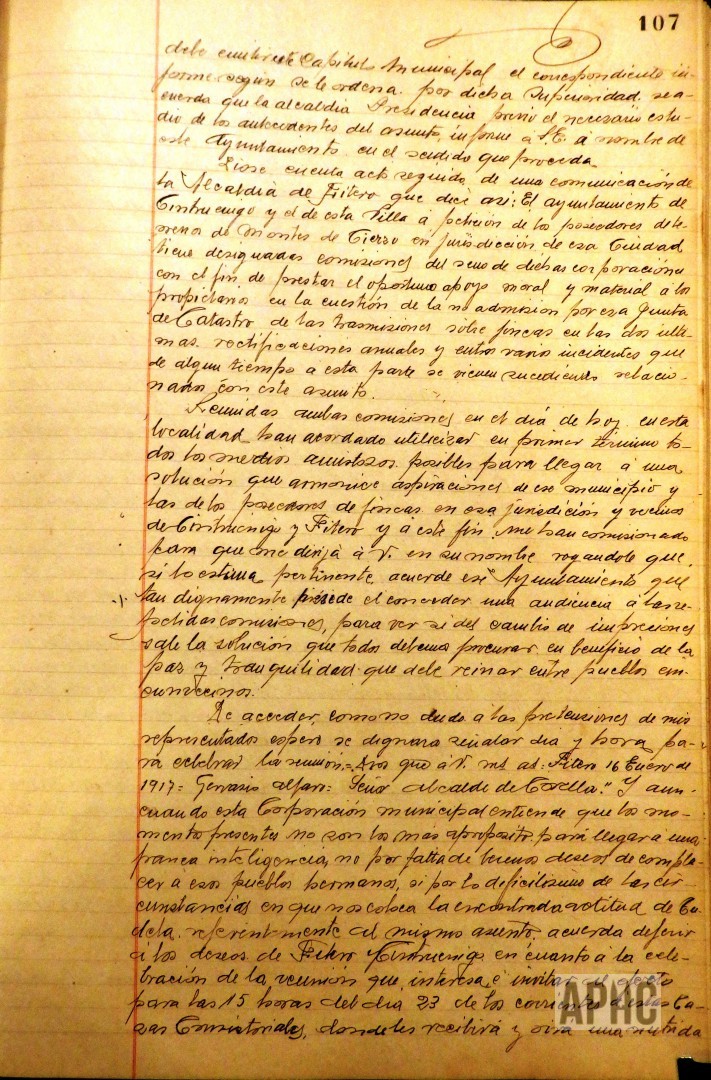 107
debe emitir este Cabildo Municipal el correspondiente in-
forme segun se le ordena por dicha Superioridad se a-
cuerda que la alcaldia Presidencia previo el necesario estu-
dio de los antecedentes del asunto, informe a S.E. á nombre de
este Ayuntamiento en el sentido que proceda.
Diose cuenta acto seguido de una comunicación de
la Alcaldia de Fitero que dice asi: El ayuntamiento de
Cintruenigo y el de esta Villa á petición de los poseedores de te-
rrenos de Montes de Cierzo en jurisdicción de esa Ciudad
tiene designadas comisiones del seno de dichas corporaciones
con el fin de prestar el oportuno apoyo moral y material a los
propietarios en la cuestión de la no admision por esa Junta
de Catastro de las trasmisiones sobre fincas en las dos ulti-
mas rectificaciones anuales y entre varios incidentes que
de algun tiempo a esta parte se vienen sucediendo relacio-
nados con este asunto.
Reunidas ambas comisiones en el día de hoy en esta
localidad han acordado utilizar en primer término to-
dos los medios amistosos posibles para llegar á una
solución que armonice aspiraciones de ese municipio y
las de los poseedores de fincas en esa jurisdición y vecinos
de Cintruenigo y Fitero y á este fin me han comisionado
para que me dirija á V. en su nombre rogandole que,
si lo estima pertinente, acuerde ese Ayuntamiento que
tan dignamente preside el conceder una audiencia á las re-
petidas comisiones, para ver si del cambio de impreciones
sale la solución que todos debemos procurar en beneficio de la
paz y tranquilidad que debe reinar entre pueblos con-
convecinos.
De acceder, como no dudo a las pretensiones de mis
representados espero se dignara señalar dia y hora pa-
ra celebrar la reunión = Dios que á V. ms. as. Fitero 16 Enero de
1917 = Gervasio Alfaro = Señor Alcalde de Corella." Y aun-
cuando esta Corporación municipal entiende que los mo-
mentos presentes no son los mas aproposito para llegar á una
franca inteligencia, no por falta de buenos deseos de compla-
cer á esos pueblos hermanos, si por lo dificilisimo de las cir-
cunstancias en que nos coloca la encontrada actitud de Tu-
dela referentemente al mismo asunto, acuerda deferir
á los deseos de Fitero Cintruenigo en cuanto á la cele-
bración de la reunión que interesa é invitar al efecto
para las 15 horas del dia 23 de los corrientes á estas Ca-
sas Consistoriales, donde les recibirá y oira una nutrida
APHC